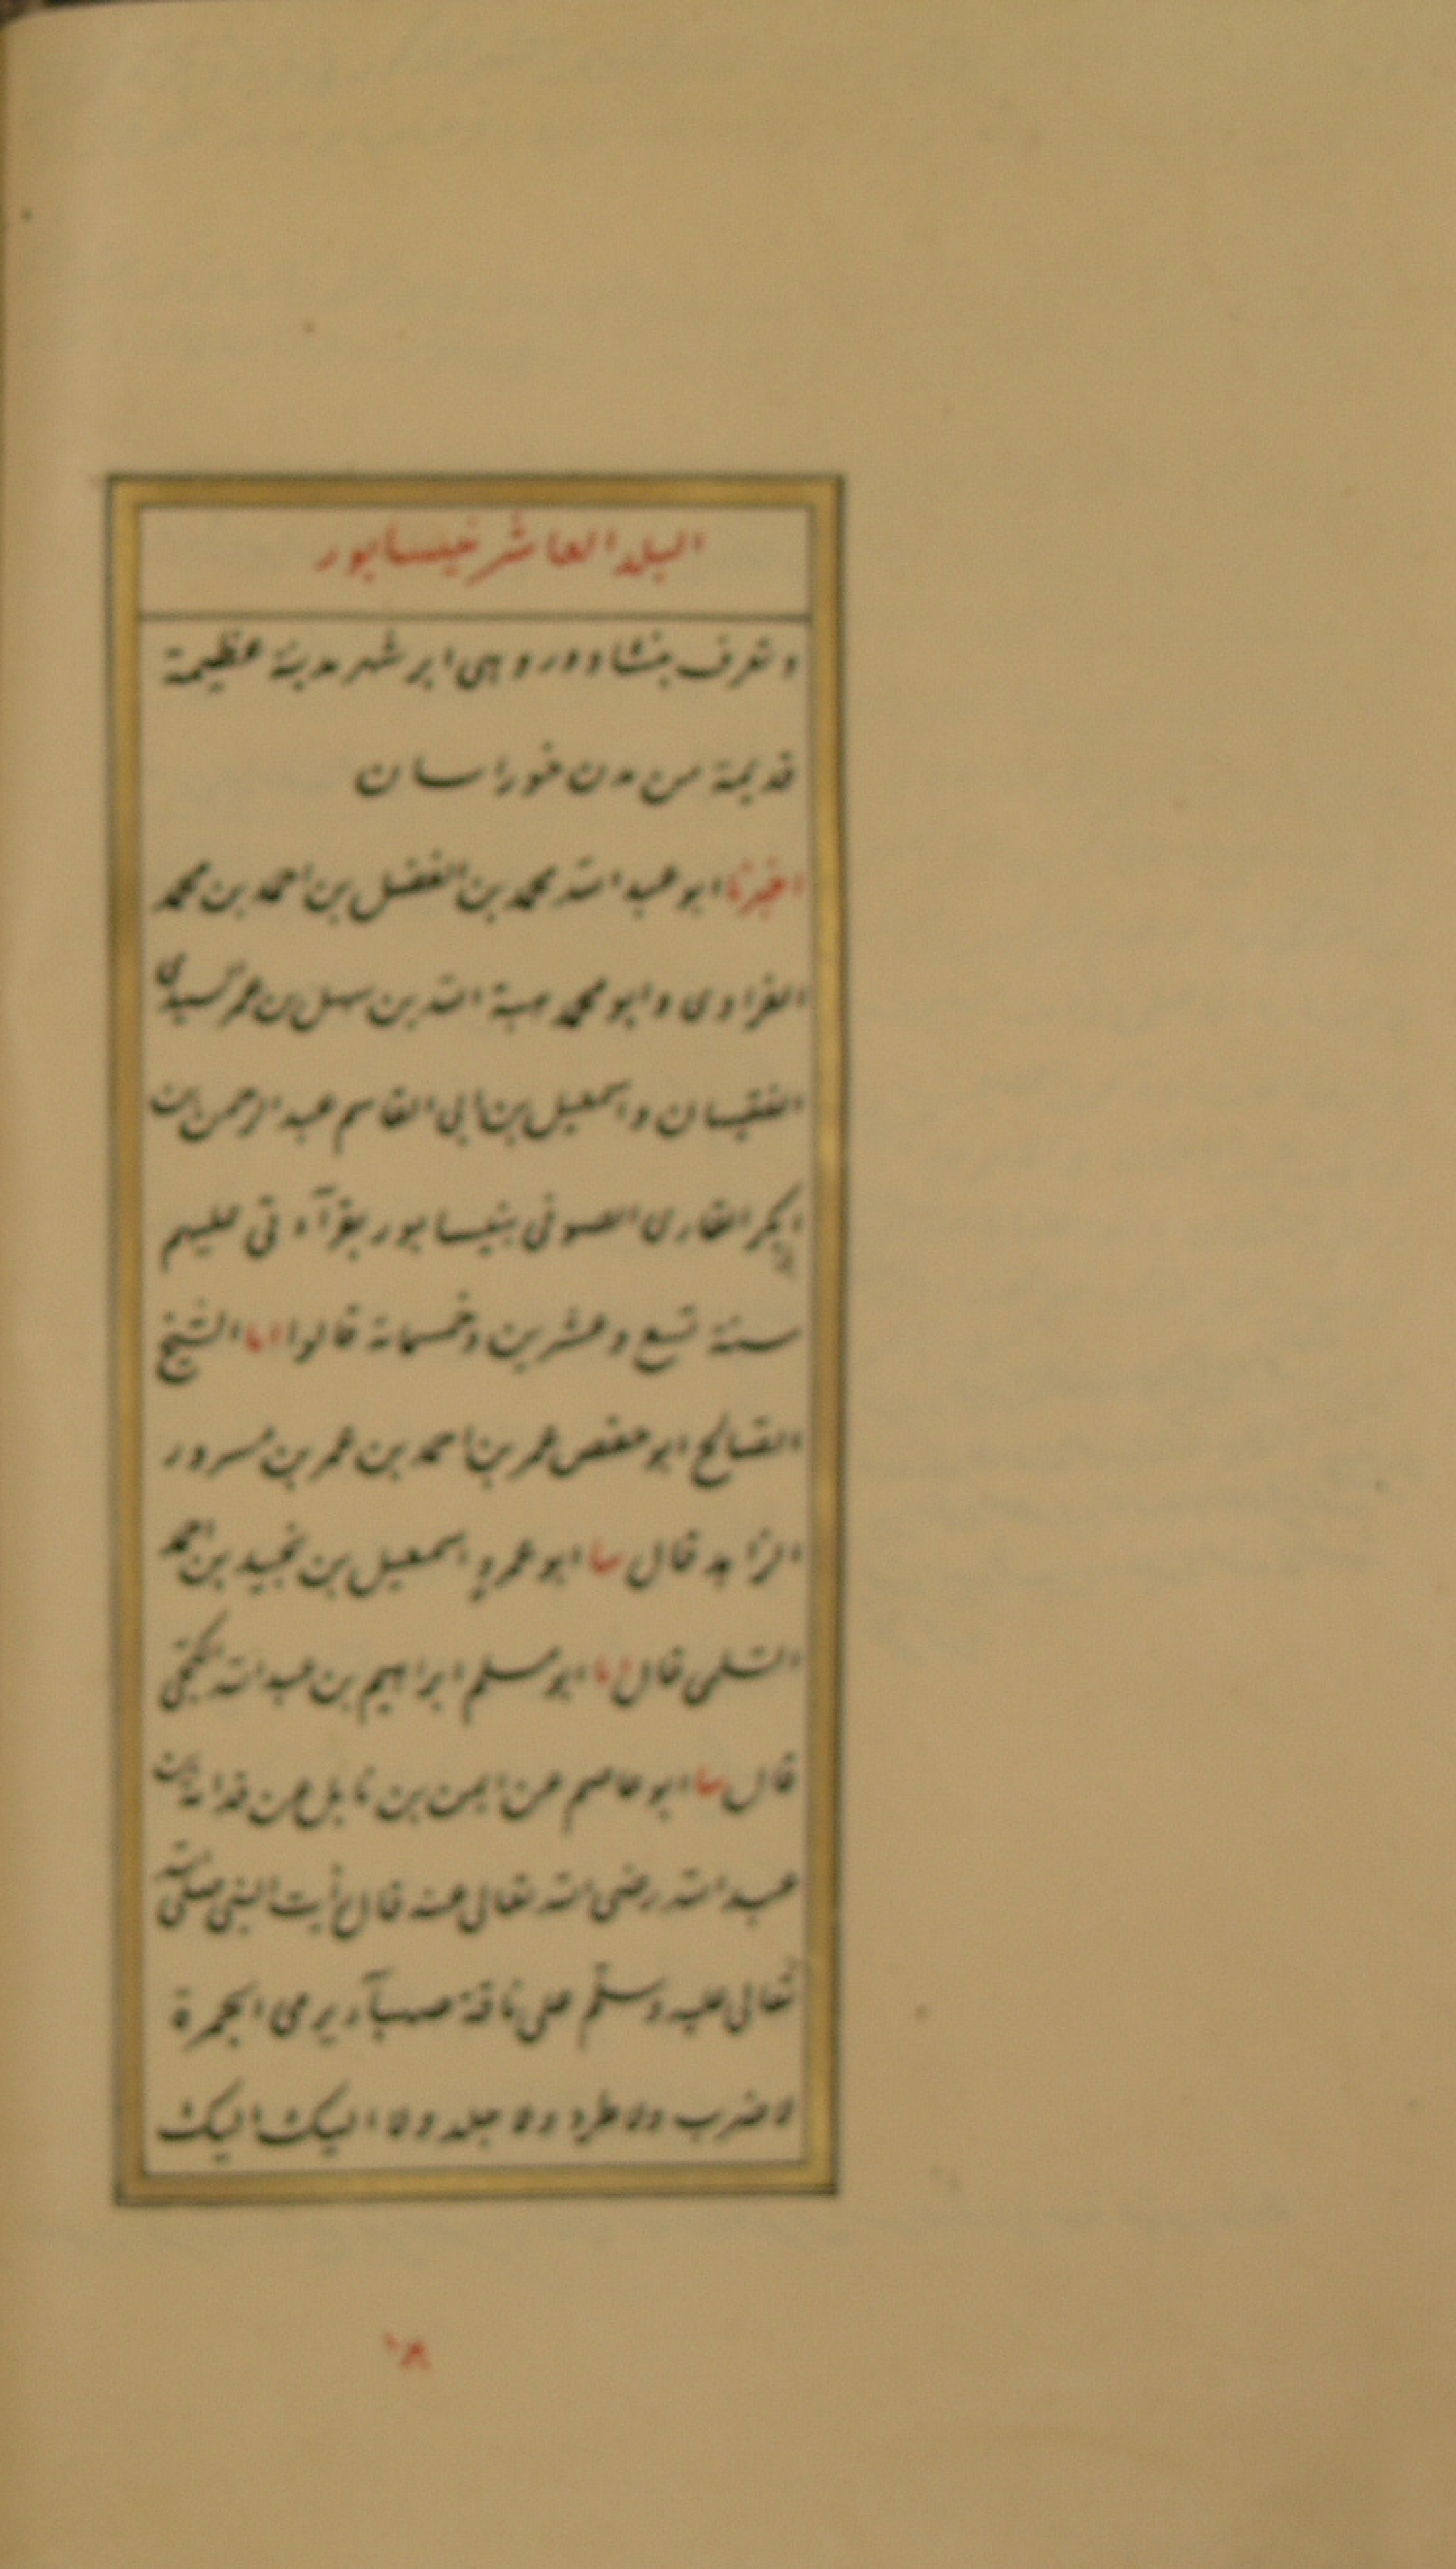 البلد العاشر نيسابور
وتعرف بنشاوور وهى ابر شهر مدينة عظيمة
قديمة من مدن خوراسان
اخبرنا ابو عبد الله محمد بن الفضل بن احمد بن محمد
الفزاوى وابو محمد هبة الله بن سهل بن عمر السيدى
الفقيهان واسمعيل بن ابى القاسم عبد الرحمن بن
ابكر القارى الصوفى بنيسابور بقرآءتى عليهم
سنة تسع وعشرين وخمسمائة قالوا انا الشيخ
الصالح ابو حفص عمر بن احمد بن عمر بن مسرور
الزاهد قال سا ابو عمرو اسمعيل بن نجيد بن احمد
السلمى قال انا ابو مسلم ابراهيم بن عبد الله الكجى
قال سا ابو عاصم عن ايمن بن نابل عن قدامة بن
عبد الله رضى الله تعالى عنه قال رأيت النبى صلى الله
تعالى عليه وسلم على ناقة صهبآء يرمى الجمرة
لا ضرب ولا طرد ولا جلد ولا اليك اليك